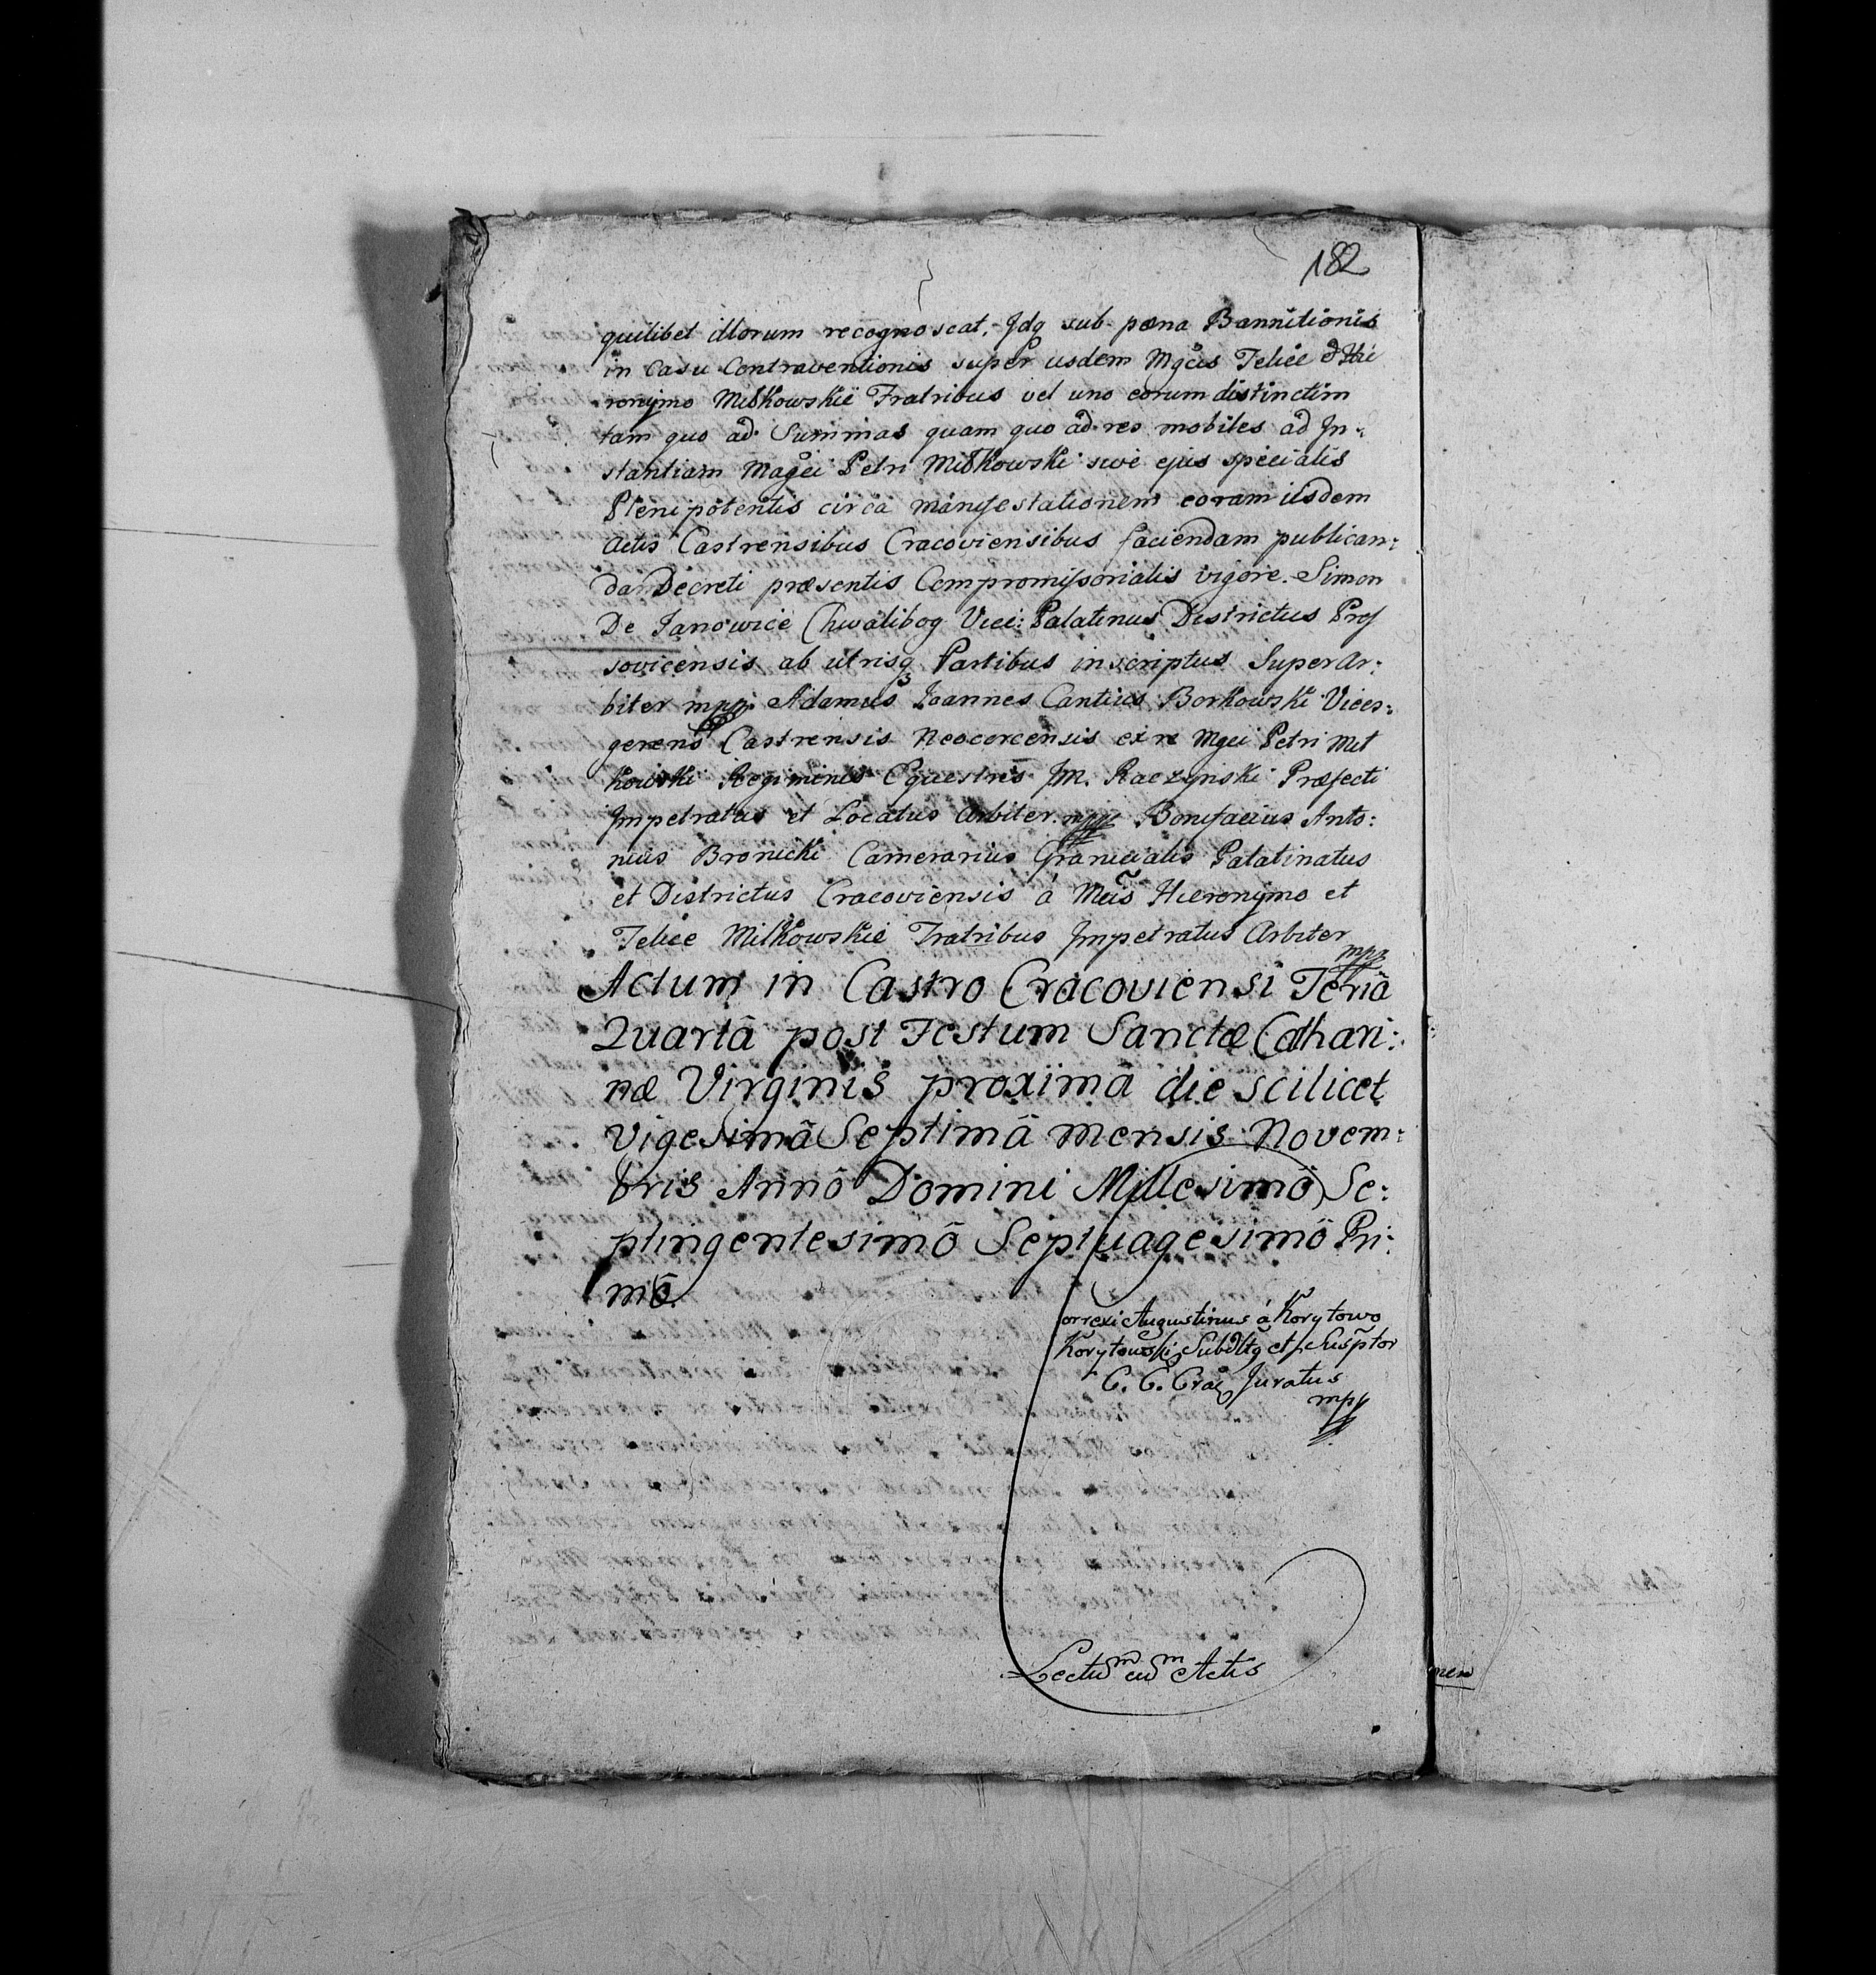 182
quilibet illorum recognoscat, Idq sub pœna Bannitionis
in Casu Contraventionis super iisdem Mgcis Felice et Hie
ronymo Miłkowskie Fratribus vel uno eorum distinctim
tam quo ad Summas quam quo ad res mobiles ad In-
stantiam Magci Petri Miłkowski sive ejus specialis
Plenipotentis circa manifestationem coram iisdem
Actis Castrensibus Cracoviensibus faciendam publican:
da Decreti præsentis Compromissorialis vigore. Simon
De Janowice Chwalibog Vice: Palatinus Districtus Pros
sovicensis ab utrisq Partibus inscriptus Super Ar:
biter mpp. Adamus Joannes Cantius Borkowski Vices:
gerens Castrensis Neocorcensis ex re Mgci Petri Mił
kowski Regiminis Equestris JM. Raczynski Præfecti
Impetratus et Locatus Arbiter mpp Bonifacius Anto:
nius Bronicki Camerarius Granicialis Palatinatus
et Districtus Cracoviensis á Mcis Hieronymo et
Felice Miłkowskie Fratribus Impetratus Arbiter
mpp
Actum in Castro Cracoviensi Feriâ
Quartâ post Festum Sanctæ Cathari:
næ Virginis proximâ die scilicet
Vigesimâ Septimâ mensis Novem:
bris Annô Domini Millesimô Se:
ptingentesimô Septuagesimô Pri:
mô.
Correxi Augustinus á Korytowo
Korytowski Subdltg et Susptor
C. C. Crac Juratus
mpp
Lectum cum Actis